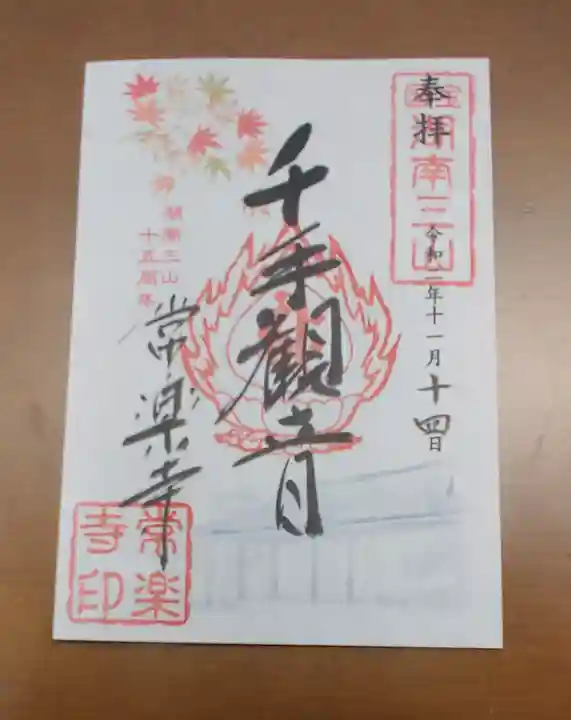 奉拝
国宝
湖南三山
令和二年十一月十四日
千手観音
湖南三山
十五周年
常楽寺
常楽
寺印